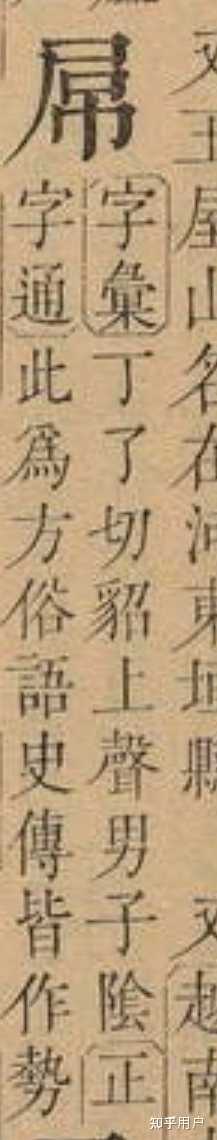 又王屋山名在河東垣縣 又越南
屌
字彙丁了切貂上聲男子陰正
字通此為方俗語史傳皆作勢
知乎用户